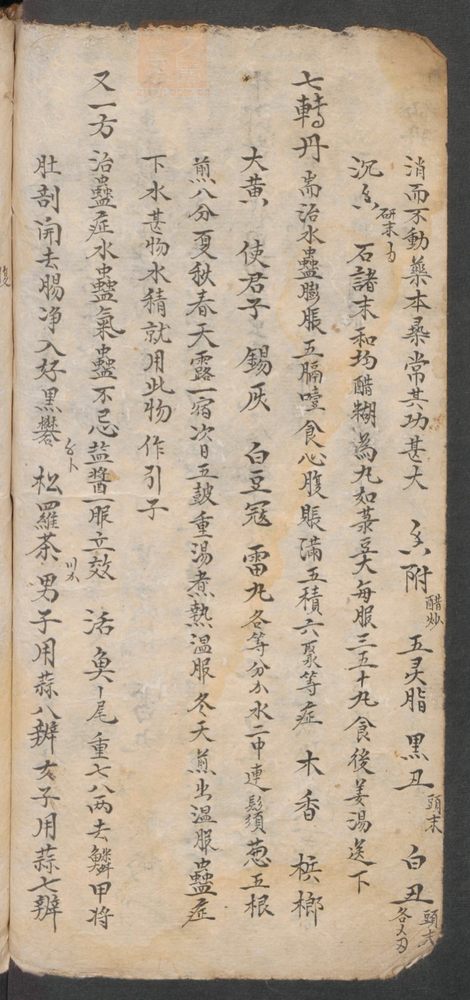 消而不動藥本桑常其功甚大 香附醋炒 五灵脂 黒丑頭末 白丑頭末各
沉香研末 石諸末和均醋糊為丸如菉豆大每服三五十丸食後姜湯送下
七轉丹耑治水蠱膨脹五膈噎食心腹賬滿五積六聚等症 木香 梹榔
大黄 使君子 錫灰 白豆冦 雷丸各等分 水二中連鬚須葱五根
煎八分夏秋春天露一宿次日五皷重湯煮熱温服冬天煎出温服蠱症
下水甚物水積就用此物作引子
又一方治蠱症水蠱氣蠱不忌盐醬一服立效 活魚一尾重七八两去鱗甲将
肚刮開去腸净入好黒礬 松羅茶 男子用蒜八辦女子用蒜七辦